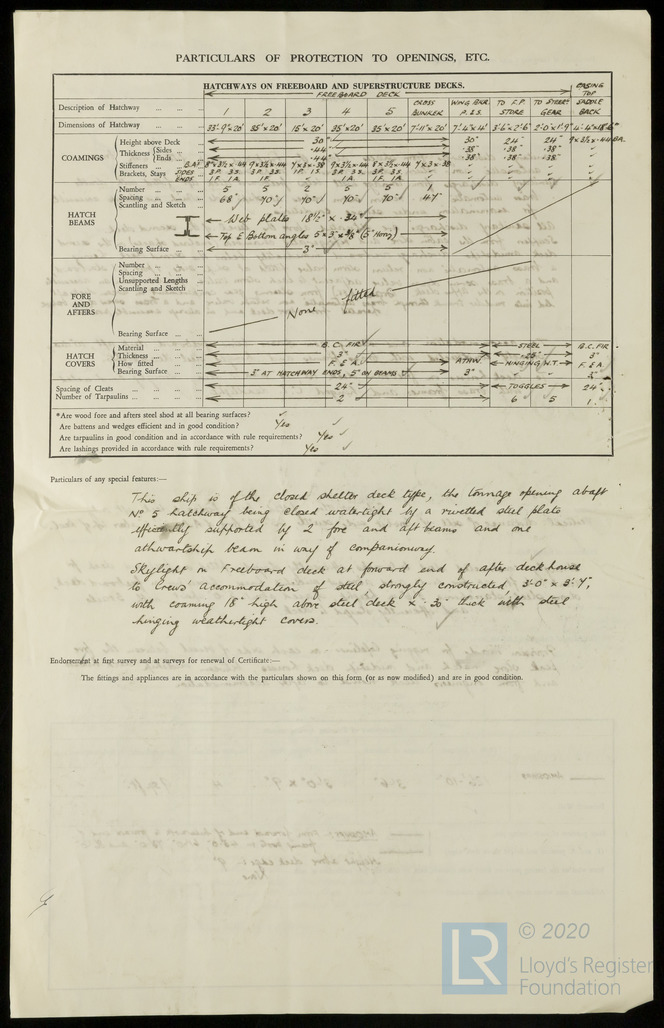 PARTICULARS OF PROTECTION TO OPENINGS, ETC.
HATCHWAYS ON FREEBOARD AND SUPERSTRUCTURE DECKS.
FREEBOARD DECK
CASING TOP
Description of Hatchway 1 2 3 4 5 CROSS BUNKER WING BKR P.&S. TO F.P. STORE TO STEER: GEAR SADDLE BACK
Dimensions of Hatchway 33'-9"x20' 35'x20' 15'x20' 35'x20' 35'x20' 7'-11"x20' 7'-4"x4' 3'-6"x2'-6" 2'-0"x1'-9"
COAMINGS
Height above Deck 30" 30" 24" 24"
Thickness Sides .44" .38" .38" .38"
Ends .44" .38" .38" .38"
Stiffeners B.A.
Brackets, Stays SIDES 3P. 3S.
ENDS 1F. 1A
HATCH BEAMS
Number 5 5 2 5 5 1
Spacing 68" 70" 70" 70" 70" 47"
Scantling and Sketch
Web plates 18½" x .34"
Top & Bottom angles 5" x 3" x 3/8" (5" Horiz)
Bearing Surface 3"
FORE AND AFTERS
Number
Spacing
Unsupported Lengths
Scantling and Sketch
None fitted
Bearing Surface
HATCH COVERS
Material B.C. FIR STEEL B.C. FIR
Thickness 3" .25" 3"
How fitted F. & A. ATHW HINGING W.T. F. & A
Bearing Surface 3" AT HATCHWAY ENDS, 5" ON BEAMS 3" 3"
Spacing of Cleats 24" TOGGLES 24"
Number of Tarpaulins 2 6 5 1
*Are wood fore and afters steel shod at all bearing surfaces?
Are battens and wedges efficient and in good condition? Yes
Are tarpaulins in good condition and in accordance with rule requirements? Yes
Are lashings provided in accordance with rule requirements? Yes
Particulars of any special features:—
This ship is of the closed shelter deck type, the tonnage opening abaft
No 5 hatchway being closed watertight by a rivetted steel plate
efficiently supported by 2 fore and aft beams and one
athwartship beam in way of companionway.
Skylight on Freeboard deck at forward end of after deck house
to Crews' accommodation of steel strongly constructed 3'-0" x 3'-4",
with coaming 18" high above steel deck x .30" thick with steel
hinging weathertight covers.
Endorsement at first survey and at surveys for renewal of Certificate:—
The fittings and appliances are in accordance with the particulars shown on this form (or as now modified) and are in good condition.
LR
© 2020
Lloyd's Register
Foundation